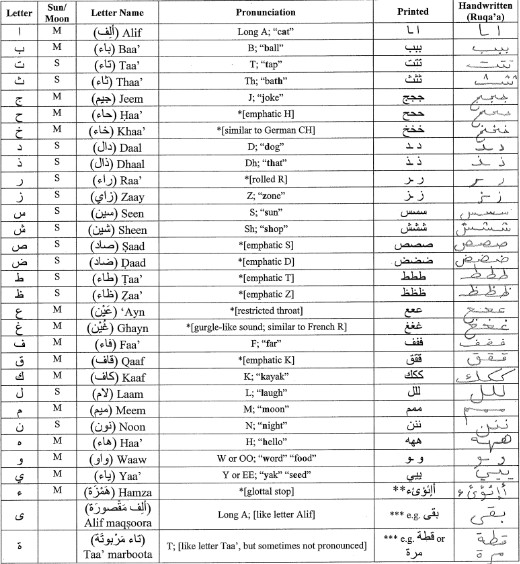 Letter Sun/Moon Letter Name Pronunciation Printed Handwritten (Ruqa'a)
ا M (أَلِف) Alif Long A; "cat" ا ـا ا ـا
ب M (باء) Baa' B; "ball" ببب ببب
ت S (تاء) Taa' T; "tap" تتت تتت
ث S (ثاء) Thaa' Th; "bath" ثثث ثثث
ج M (جيم) Jeem J; "joke" ججج ججج
ح M (حاء) Ḥaa' *[emphatic H] ححح ححح
خ M (خاء) Khaa' *[similar to German CH] خخخ خخخ
د S (دال) Daal D; "dog" د ـد د ـد
ذ S (ذال) Dhaal Dh; "that" ذ ـذ ذ ـذ
ر S (راء) Raa' *[rolled R] ر ـر ر ـر
ز S (زاي) Zaay Z; "zone" ز ـز ز ـز
س S (سين) Seen S; "sun" سسس سسس
ش S (شين) Sheen Sh; "shop" ششش ششش
ص S (صاد) Ṣaad *[emphatic S] صصص صصص
ض S (ضاد) Ḍaad *[emphatic D] ضضض ضضض
ط S (طاء) Ṭaa' *[emphatic T] ططط ططط
ظ S (ظاء) Ẓaa' *[emphatic Z] ظظظ ظظظ
ع M (عَيْن) 'Ayn *[restricted throat] ععع ععع
غ M (غَيْن) Ghayn *[gurgle-like sound; similar to French R] غغغ غغغ
ف M (فاء) Faa' F; "far" ففف ففف
ق M (قاف) Qaaf *[emphatic K] ققق ققق
ك M (كاف) Kaaf K; "kayak" ككك ككك
ل S (لام) Laam L; "laugh" للل للل
م M (ميم) Meem M; "moon" ممم ممم
ن S (نون) Noon N; "night" ننن ننن
ه M (هاء) Haa' H; "hello" ههه ههه
و M (واو) Waaw W or OO; "word" "food" و ـو و ـو
ي M (ياء) Yaa' Y or EE; "yak" "seed" ييي ييي
ء M (هَمْزَة) Hamza *[glottal stop] **أإئؤىء
ى (أَلِف مَقْصورَة) Alif maqṣoora Long A; [like letter Alif] *** e.g. بقى بقى
ة (تاء مَرْبوتَة) Taa' marboota T; [like letter Taa', but sometimes not pronounced] *** e.g. قطة or مرة قطة مرة